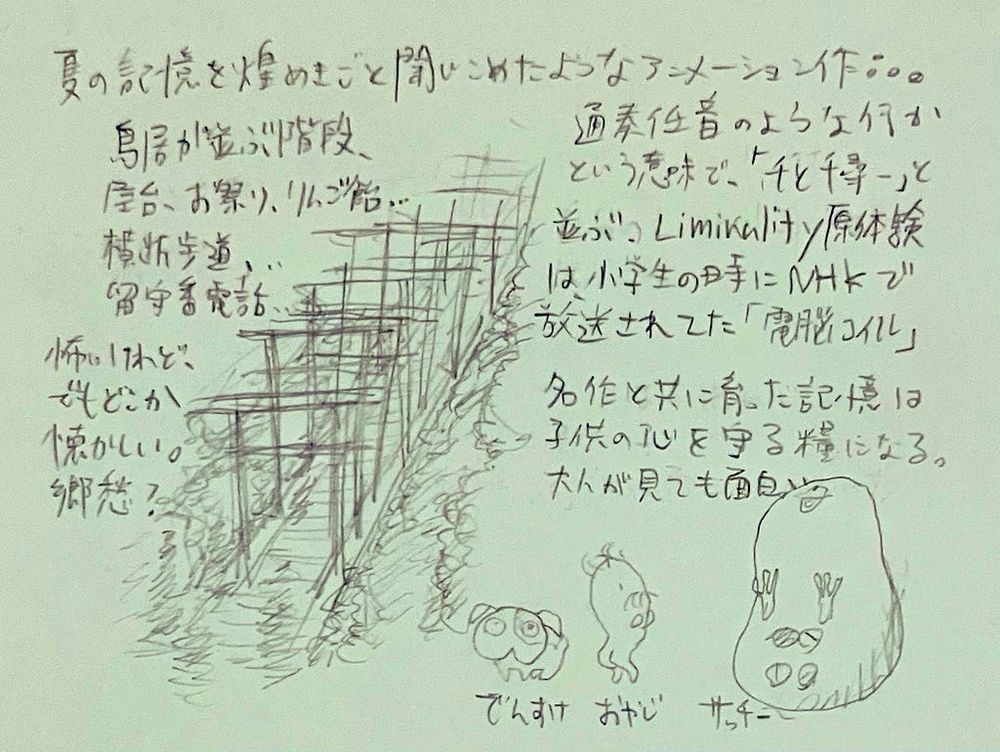 夏の記憶を煌めきごと閉じこめたようなアニメーション作...
鳥居が並ぶ階段、
屋台、お祭り、りんご飴...
横断歩道、...
留守番電話...
怖いけれど、
でもどこか
懐かしい。
郷愁?
通奏低音のような何か
という意味で、「千と千尋ー」と
並ぶ。Liminality原体験
は、小学生の時にNHKで
放送されてた「電脳コイル」
名作と共に育った記憶は
子供の心を守る糧になる。
大人が見ても面白い
でんすけ おやじ サッチー